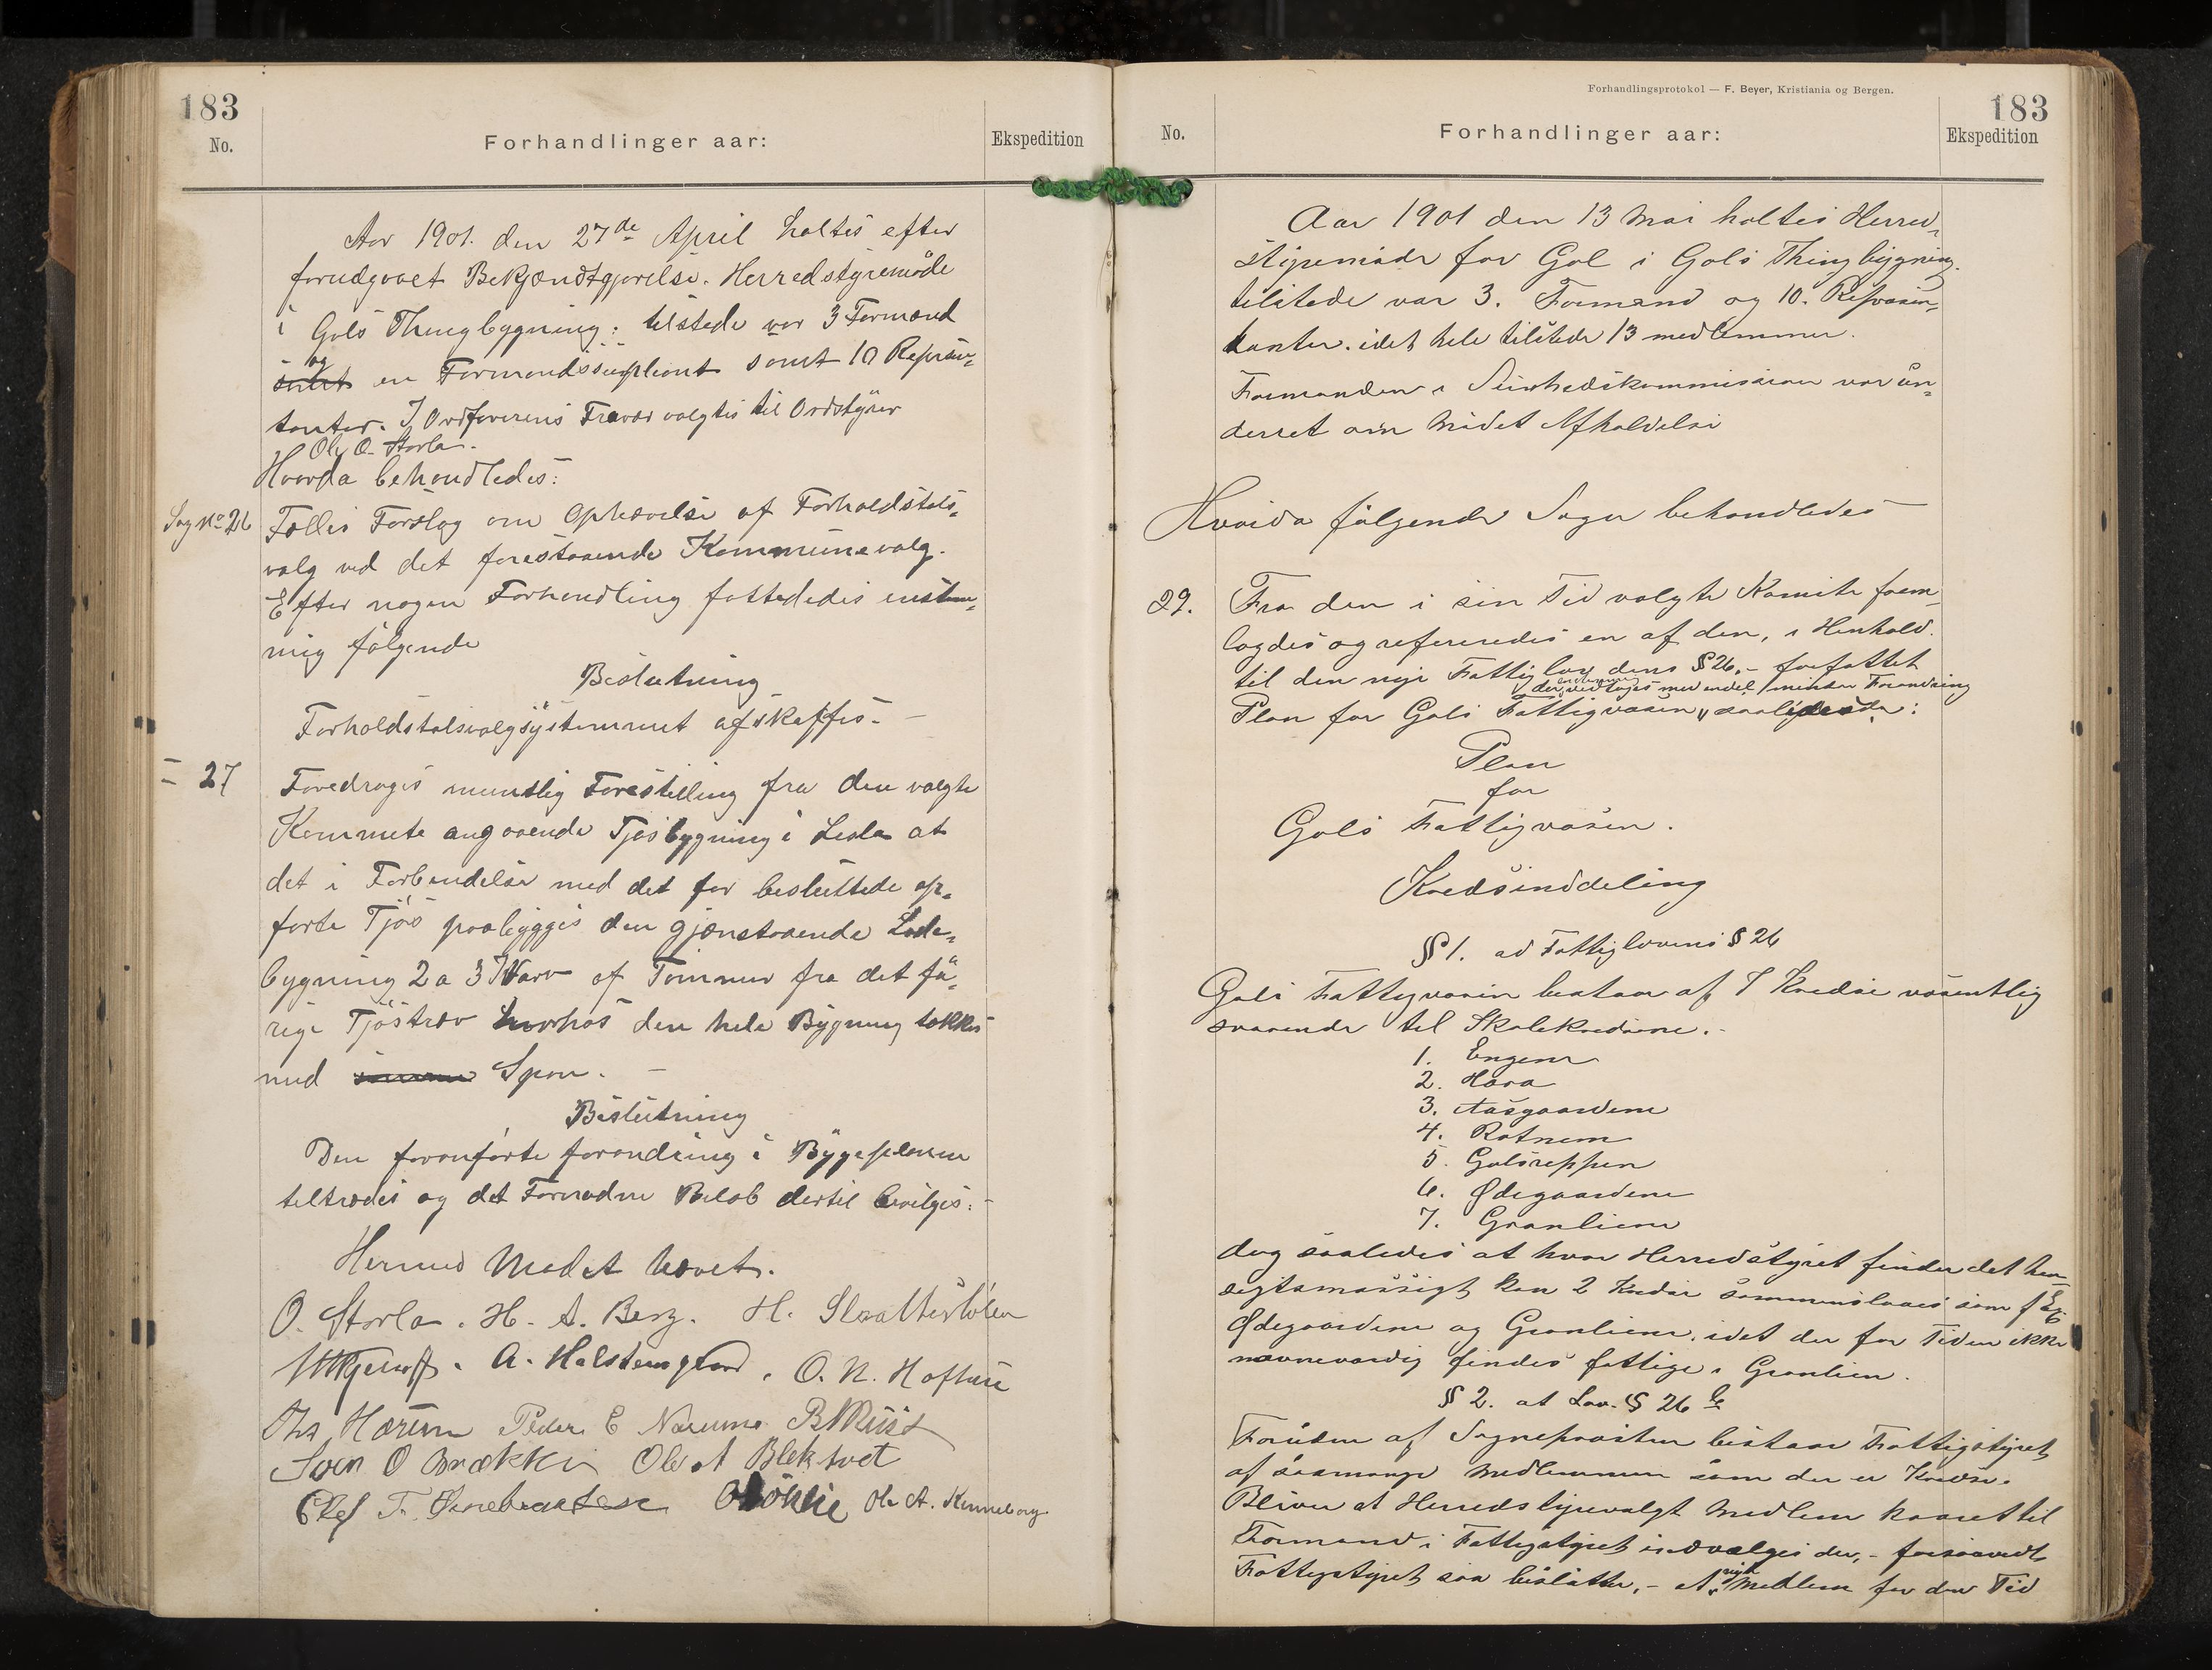 183
No.
Forhandlinger aar:
Ekspedition
Aar 1901. den 27de April holtes efter
forudgaaet Bekjendtgjørelse. Herredstyremøde
i Gols Thingbygning: tilstede var 3 Formænd
og
samt en Formandssupliant samt 10 Repræsen-
tanter. I Ordførerens Fravær valgtes til Ordstyrer
Ole O. Storla.
Hvorda behandledes:
Sag No 26 Fælles Forslag om Ophævelse af Forholdstals-
valg ved det forestaaende Kommunevalg.
Efter nogen Forhandling fattedes enstem-
mig følgende
Beslutning
Forholdstalsvalgsystemmet afskaffes. —
= 27 Foredroges mundtlig Forestilling fra den valgte
Kommite angaaende Fjøsbygning i Lesla at
det i Forbendelse med det før besluttede op-
førte Fjøs paabygges den gjenstaaende Lade-
bygning 2 a 3 Varv af Tømmer fra det fø-
rige Fjøstræv hvorhos den hele Bygning tækkes
med Spon. —
Beslutning
Den foranførte forandring i Bygeplanen
tiltrædes og det Fornødne Beløb dertil bevilges: -
Hermed Mødet hævet.
O. Storla. H. A. Berg. H. Slaattestølen
A. Halstengaard, O. N. Hoftun
Ths Hærum Peder E Narum B Rust
Sven O Brække Ole A Blekstvet
T. Ole A. Kinneberg
Forhandlingsprotokol — F. Beyer, Kristiania og Bergen.
183
No.
Forhandlinger aar:
Ekspedition
Aar 1901 den 13 Mai holtes Herred-
styremøde for Gol i Gols Thingbygning.
tilstede var 3. Formænd og 10. Repræsen-
tanter. idet hele tilstede 13 medlemmer.
Formanden i Sundhedskommisionen var un-
derret om Mødets Afholdelse
Hvorda følgende Sager behandledes
29. Fra den i sin Tid valgte Komite frem-
lagdes og refereredes en af den, i Henhold
til den nye Fattiglov dens § 26, - forfattet
der vedtoges med endel mindre Forandring
Plan for Gols Fattigvæsen, saalydende:
Plan
for
Gols Fattigvæsen.
Kredsinddeling
§ 1. ad Fattiglovens § 26
Gols Fattigvæsen bestaar af 7 Kredse væsentlig
svarende til Skolekredsene. -
1. Engene
2. Hæra
3. Aasgaardene
4. Rotnem
5. Golsreppen
6. Ødegaardene
7. Granliene
dog saaledes at hvor Herredstyret finder det hen-
sigtsmæssigt kan 2 Kredse sammenslaaes som f Ex.
Ødegaardene og Granliene, idet der for Tiden ikke
nævneværdig findes fattige i Granlien.
§ 2. at Lov. § 26 b
Foruden af Sognepræsten bestaar Fattigstyret
af saamange Medlemmer som der er Kredse.
Bliver et Herredstyrevalgt Medlem kaaret til
Formand i Fattigstyret indvælges der, - forsaavidt
Fattigstyret saa beslutter, - et nyt Medlem for den Tid